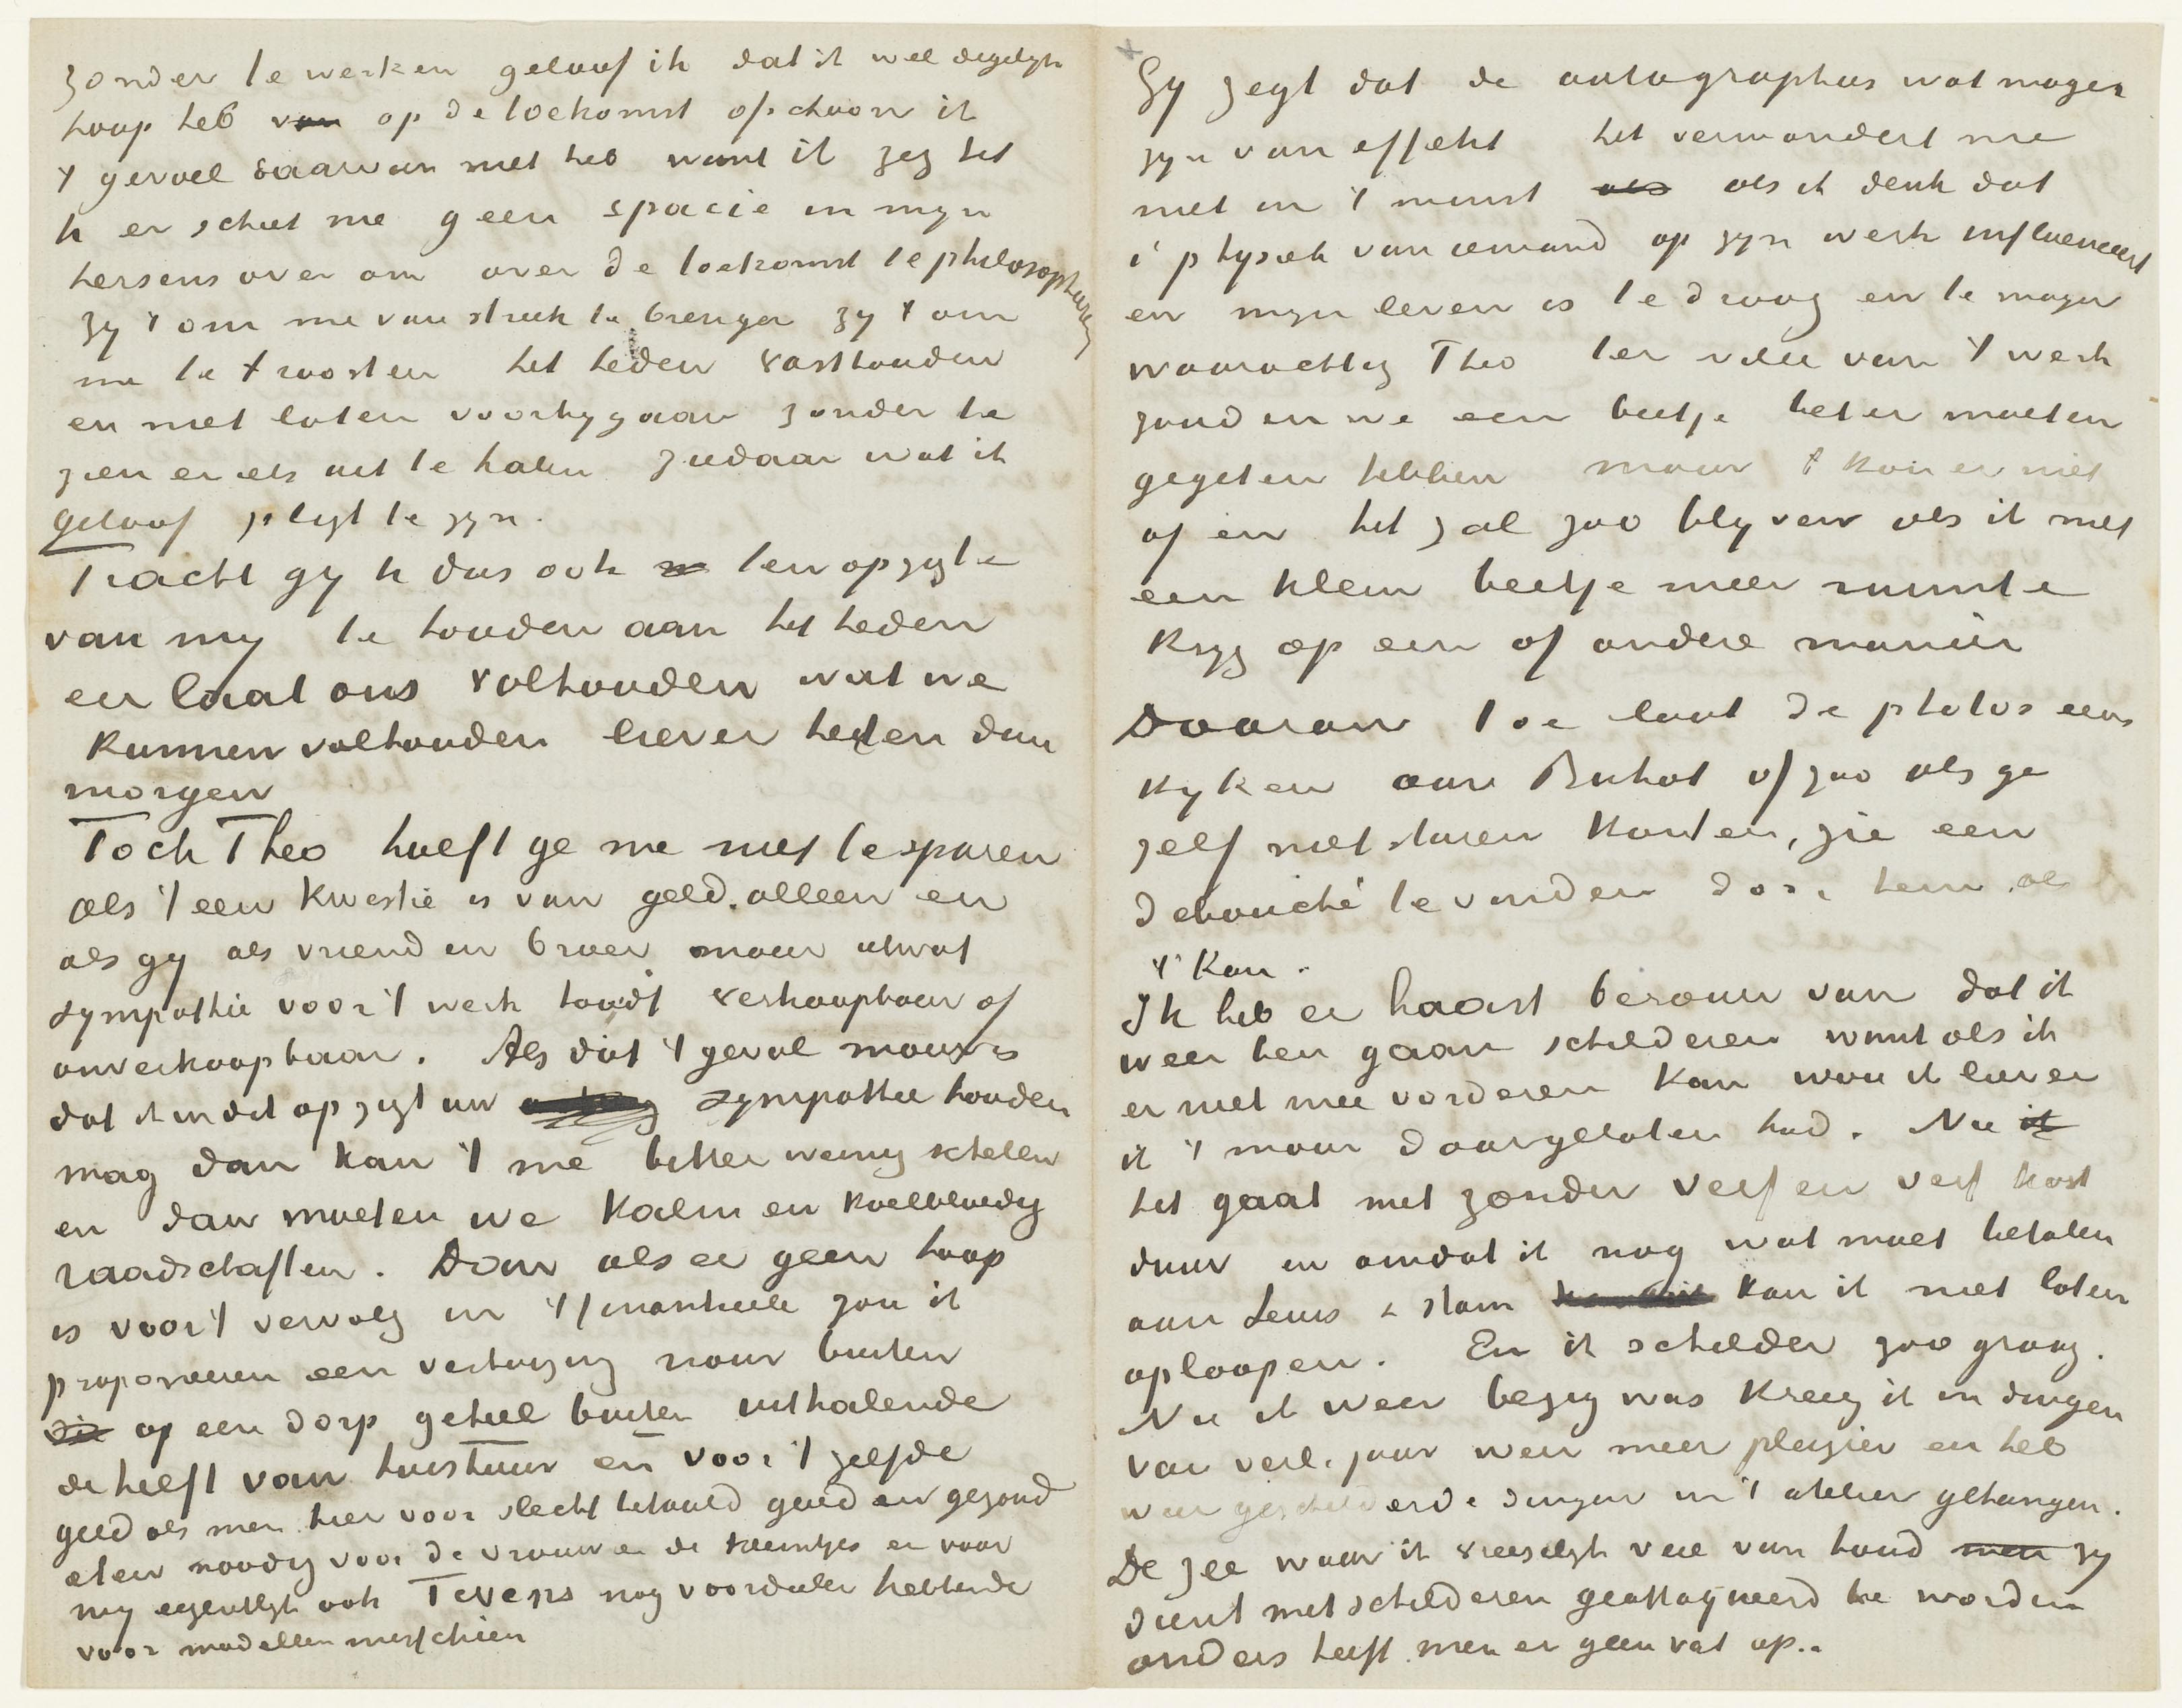 zonder te werken geloof ik dat ik wel degelyk
hoop heb van op de toekomst ofschoon ik
't gevoel daarvan niet heb want ik zeg het
U er schiet me geen spacie in myn
hersens over om over de toekomst te philosopheeren
zy 't om me van streek te brengen zy 't om
me te troosten het heden vasthouden
en niet laten voorbygaan zonder te
zien er iets uit te halen ziedaar wat ik
geloof pligt te zyn.
Tracht gy U dus ook ten opzigte
van my te houden aan het heden
en laat ons volhouden wat we
kunnen volhouden liever heden dan
morgen
Toch Theo hoeft ge me niet te sparen
als 't een kwestie is van geld alleen en
als gy als vriend en broer maar ietwat
sympathie voor 't werk houdt verkoopbaar of
onverkoopbaar. Als dat 't geval maar is
dat ik in dit opzigt uw sympathie houden
mag dan kan 't me bitter weinig schelen
en dan moeten we kalm en koelbloedig
raadschaffen. Dan als er geen hoop
is voor 't vervolg in 't finantieele zou ik
proponeeren een verhuizing naar buiten
die op een dorp geheel buiten uithalende
de helft van huishuur en voor 't zelfde
geld als men hier voor slecht betaald goed en gezond
eten noodig voor de vrouw en de kleintjes en voor
my eigentlyk ook Tevens nog voordeelen hebbende
voor modellen misschien
Gy zegt dat de autographies wat mager
zyn van effekt het verwondert me
niet in 't minst als als ik denk dat
't physiek van iemand op zyn werk influenceert
en myn leven is te droog en te mager
waarachtig Theo ter wille van 't werk
zouden we een beetje beter moeten
gegeten hebben maar 't kon er niet
af en het zal zoo blyven als ik niet
een klein beetje meer ruimte
kryg op een of andere manier
Daaraan toe laat de photos eens
kyken aan Buhot of zoo als ge
zelf niet sturen kondten, zie een
debouché te vinden door hem als
't kan.
Ik heb er haast berouw van dat ik
weer ben gaan schilderen want als ik
er niet mee vorderen kan wou ik liever
ik 't maar daargelaten had. Nu ik
het gaat niet zonder verf en verf kost
duur en omdat ik nog wat moet betalen
aan Leurs & Stam kan ik niet laten
oploopen. En ik schilder zoo graag.
Nu ik weer bezig was kreeg ik in dingen
van verl. jaar weer meer plezier en heb
weer geschilderde dingen in 't atelier gehangen.
De zee waar ik vreeselyk veel van houd men zy
dient met schilderen geattaqueerd te worden
anders heeft men er geen vat op..